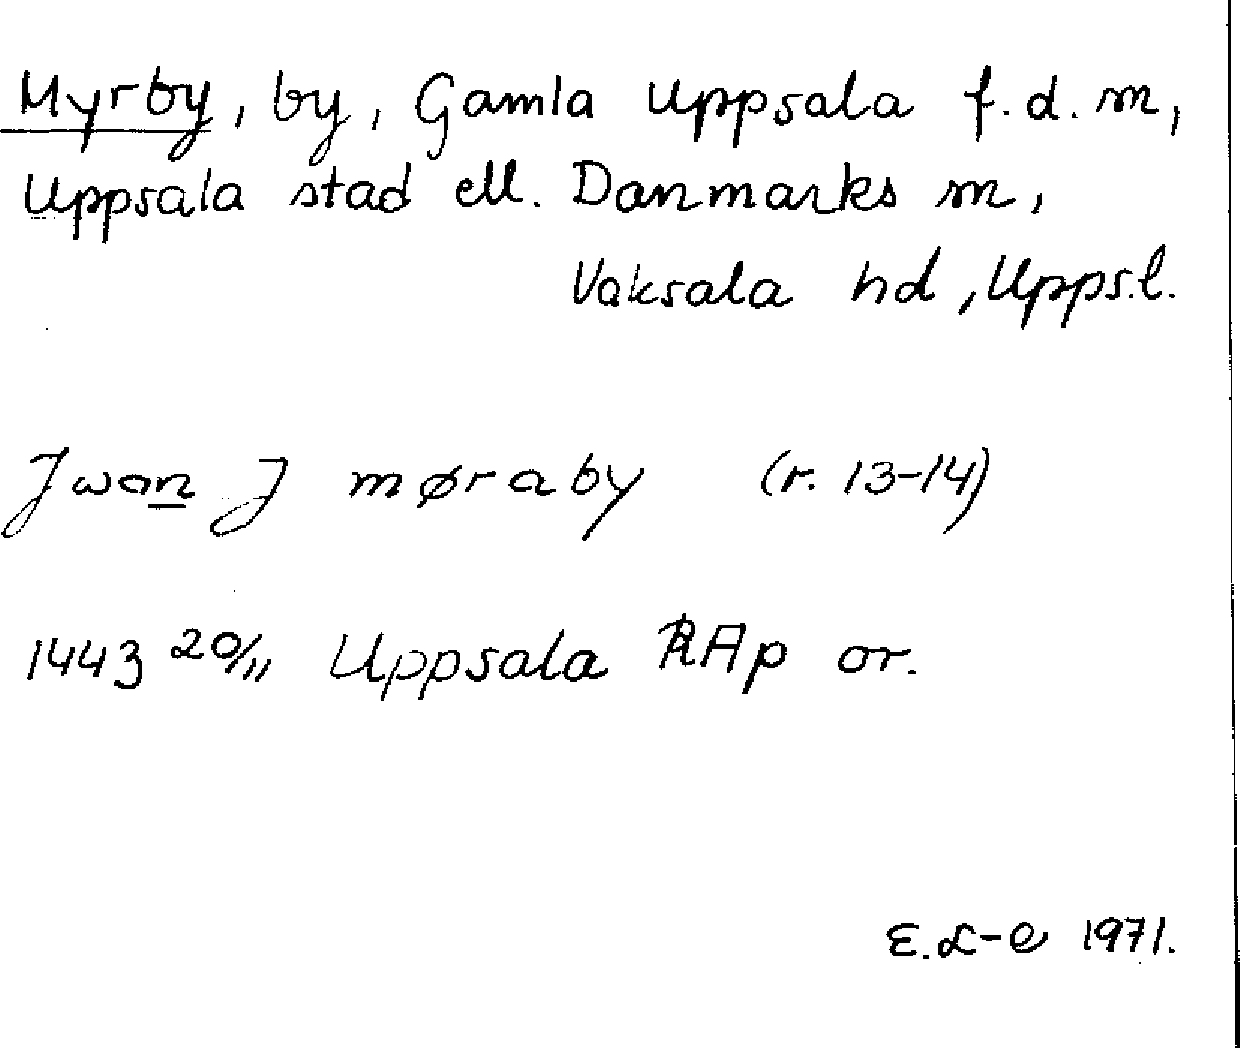 Myrby, by, Gamla Uppsala f.d. sn,
Uppsala stad ell. Danmarks sn,
Vaksala hd, Upps.l.
Jwan J møraby (r. 13-14)
1443 20/11 Uppsala RAp or.
E. L-e 1971.